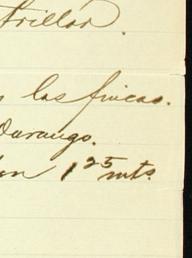 trillar.
las fincas.
Durango.
1 25 mts.